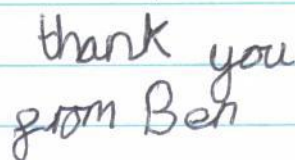 thank you
from Ben